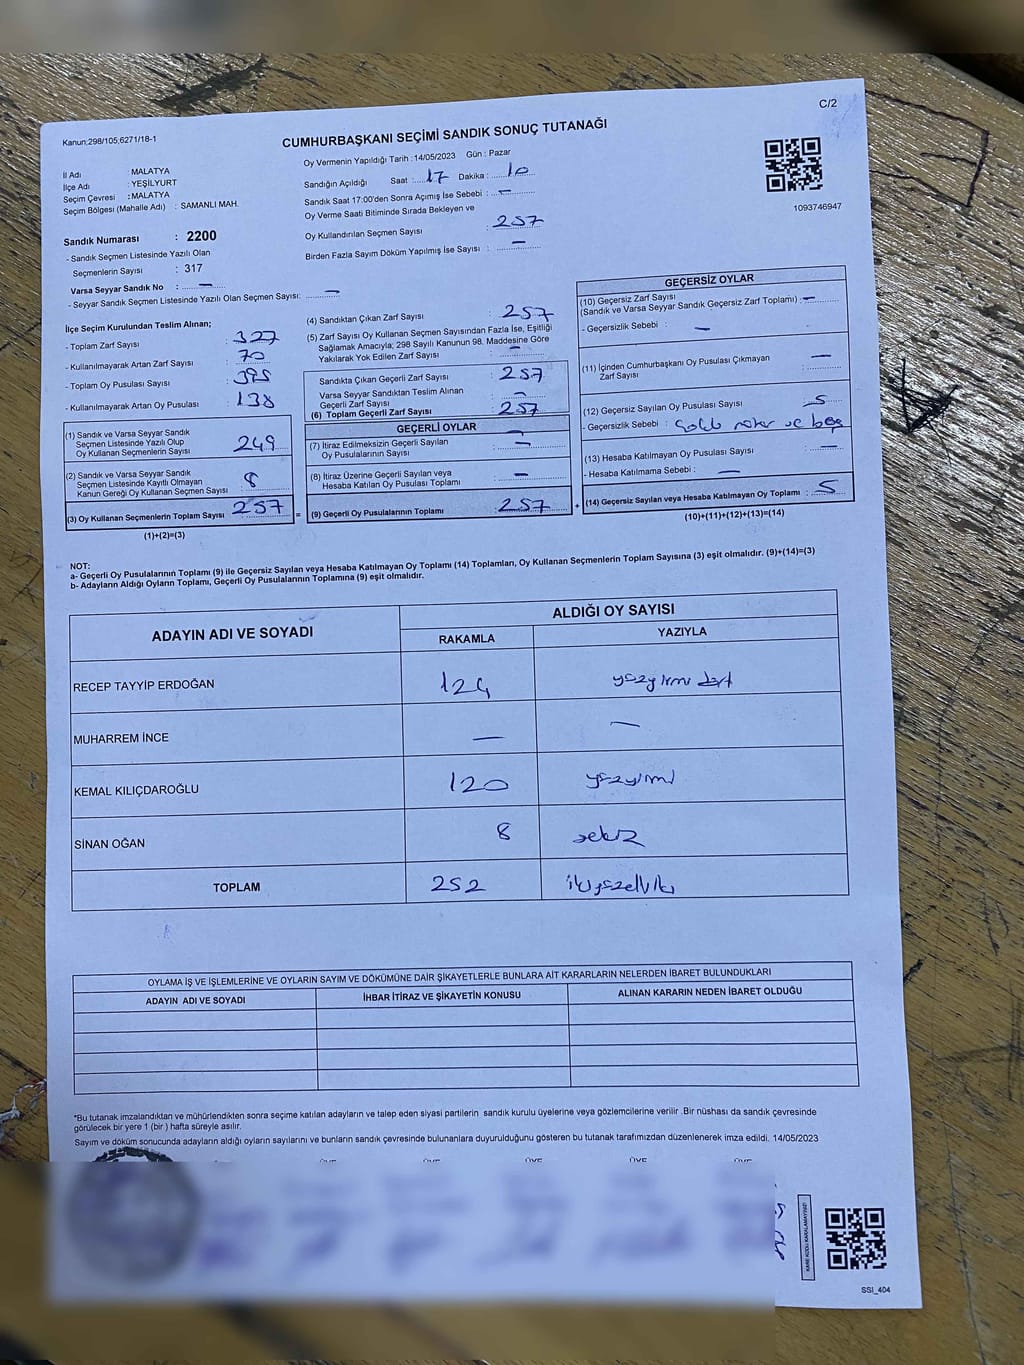 C/2
Kanun;298/105;6271/18-1
CUMHURBAŞKANI SEÇİMİ SANDIK SONUÇ TUTANAĞI
İl Adı : MALATYA
İlçe Adı : YEŞİLYURT
Seçim Çevresi : MALATYA
Seçim Bölgesi (Mahalle Adı) : SAMANLI MAH.
Oy Vermenin Yapıldığı Tarih :14/05/2023 Gün : Pazar
Sandığın Açıldığı Saat : 17 Dakika : 10
Sandık Saat 17:00'den Sonra Açımış İse Sebebi : —
Oy Verme Saati Bitiminde Sırada Bekleyen ve
Oy Kullandırılan Seçmen Sayısı : 257
Birden Fazla Sayım Döküm Yapılmış İse Sayısı : —
1093746947
Sandık Numarası : 2200
- Sandık Seçmen Listesinde Yazılı Olan
Seçmenlerin Sayısı : 317
Varsa Seyyar Sandık No : —
- Seyyar Sandık Seçmen Listesinde Yazılı Olan Seçmen Sayısı: —
İlçe Seçim Kurulundan Teslim Alınan;
- Toplam Zarf Sayısı : 327
- Kullanılmayarak Artan Zarf Sayısı : 70
- Toplam Oy Pusulası Sayısı : 395
- Kullanılmayarak Artan Oy Pusulası : 138
(1) Sandık ve Varsa Seyyar Sandık
Seçmen Listesinde Yazılı Olup
Oy Kullanan Seçmenlerin Sayısı : 249
(2) Sandık ve Varsa Seyyar Sandık
Seçmen Listesinde Kayıtlı Olmayan
Kanun Gereği Oy Kullanan Seçmen Sayısı : 8
(3) Oy Kullanan Seçmenlerin Toplam Sayısı : 257
(1)+(2)=(3)
(4) Sandıktan Çıkan Zarf Sayısı : 257
(5) Zarf Sayısı Oy Kullanan Seçmen Sayısından Fazla İse, Eşitliği
Sağlamak Amacıyla; 298 Sayılı Kanunun 98. Maddesine Göre
Yakılarak Yok Edilen Zarf Sayısı : —
Sandıkta Çıkan Geçerli Zarf Sayısı : 257
Varsa Seyyar Sandıktan Teslim Alınan
Geçerli Zarf Sayısı : —
(6) Toplam Geçerli Zarf Sayısı : 257
GEÇERLİ OYLAR
(7) İtiraz Edilmeksizin Geçerli Sayılan
Oy Pusulalarının Sayısı : —
(8) İtiraz Üzerine Geçerli Sayılan veya
Hesaba Katılan Oy Pusulası Toplamı : —
= (9) Geçerli Oy Pusulalarının Toplamı : 257
GEÇERSİZ OYLAR
(10) Geçersiz Zarf Sayısı
(Sandık ve Varsa Seyyar Sandık Geçersiz Zarf Toplamı) : —
- Geçersizlik Sebebi : —
(11) İçinden Cumhurbaşkanı Oy Pusulası Çıkmayan
Zarf Sayısı : —
(12) Geçersiz Sayılan Oy Pusulası Sayısı : 5
- Geçersizlik Sebebi : ve boş
(13) Hesaba Katılmayan Oy Pusulası Sayısı : —
- Hesaba Katılmama Sebebi : —
+ (14) Geçersiz Sayılan veya Hesaba Katılmayan Oy Toplamı : 5
(10)+(11)+(12)+(13)=(14)
NOT:
a- Geçerli Oy Pusulalarının Toplamı (9) ile Geçersiz Sayılan veya Hesaba Katılmayan Oy Toplamı (14) Toplamları, Oy Kullanan Seçmenlerin Toplam Sayısına (3) eşit olmalıdır. (9)+(14)=(3)
b- Adayların Aldığı Oyların Toplamı, Geçerli Oy Pusulalarının Toplamına (9) eşit olmalıdır.
ADAYIN ADI VE SOYADI ALDIĞI OY SAYISI
RAKAMLA YAZIYLA
RECEP TAYYİP ERDOĞAN 124 yüzyirmi dört
MUHARREM İNCE — —
KEMAL KILIÇDAROĞLU 120 yüzyirmi
SİNAN OĞAN 8 sekiz
TOPLAM 252 ikiyüzelliiki
OYLAMA İŞ VE İŞLEMLERİNE VE OYLARIN SAYIM VE DÖKÜMÜNE DAİR ŞİKAYETLERLE BUNLARA AİT KARARLARIN NELERDEN İBARET BULUNDUKLARI
ADAYIN ADI VE SOYADI İHBAR İTİRAZ VE ŞİKAYETİN KONUSU ALINAN KARARIN NEDEN İBARET OLDUĞU
*Bu tutanak imzalandıktan ve mühürlendikten sonra seçime katılan adayların ve talep eden siyasi partilerin sandık kurulu üyelerine veya gözlemcilerine verilir .Bir nüshası da sandık çevresinde
görülecek bir yere 1 (bir ) hafta süreyle asılır.
Sayım ve döküm sonucunda adayların aldığı oyların sayılarını ve bunların sandık çevresinde bulunanlara duyurulduğunu gösteren bu tutanak tarafımızdan düzenlenerek imza edildi. 14/05/2023
ÜYE ÜYE ÜYE ÜYE ÜYE
KARE KODU KARALAMAYINIZ!
SSI_404